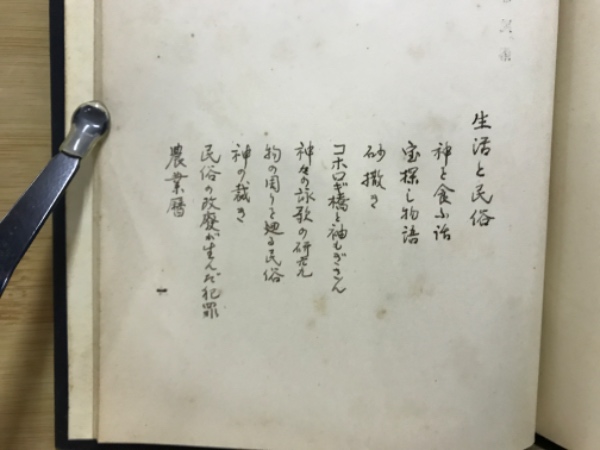 生活と民俗
神と食ふ話
宝探し物語
砂撒き
コホロギ橋と袖もぎさん
神々の詠歌の研究
物の周りを廻る民俗
神の裁き
民俗の改廃が生んだ犯罪
農業暦